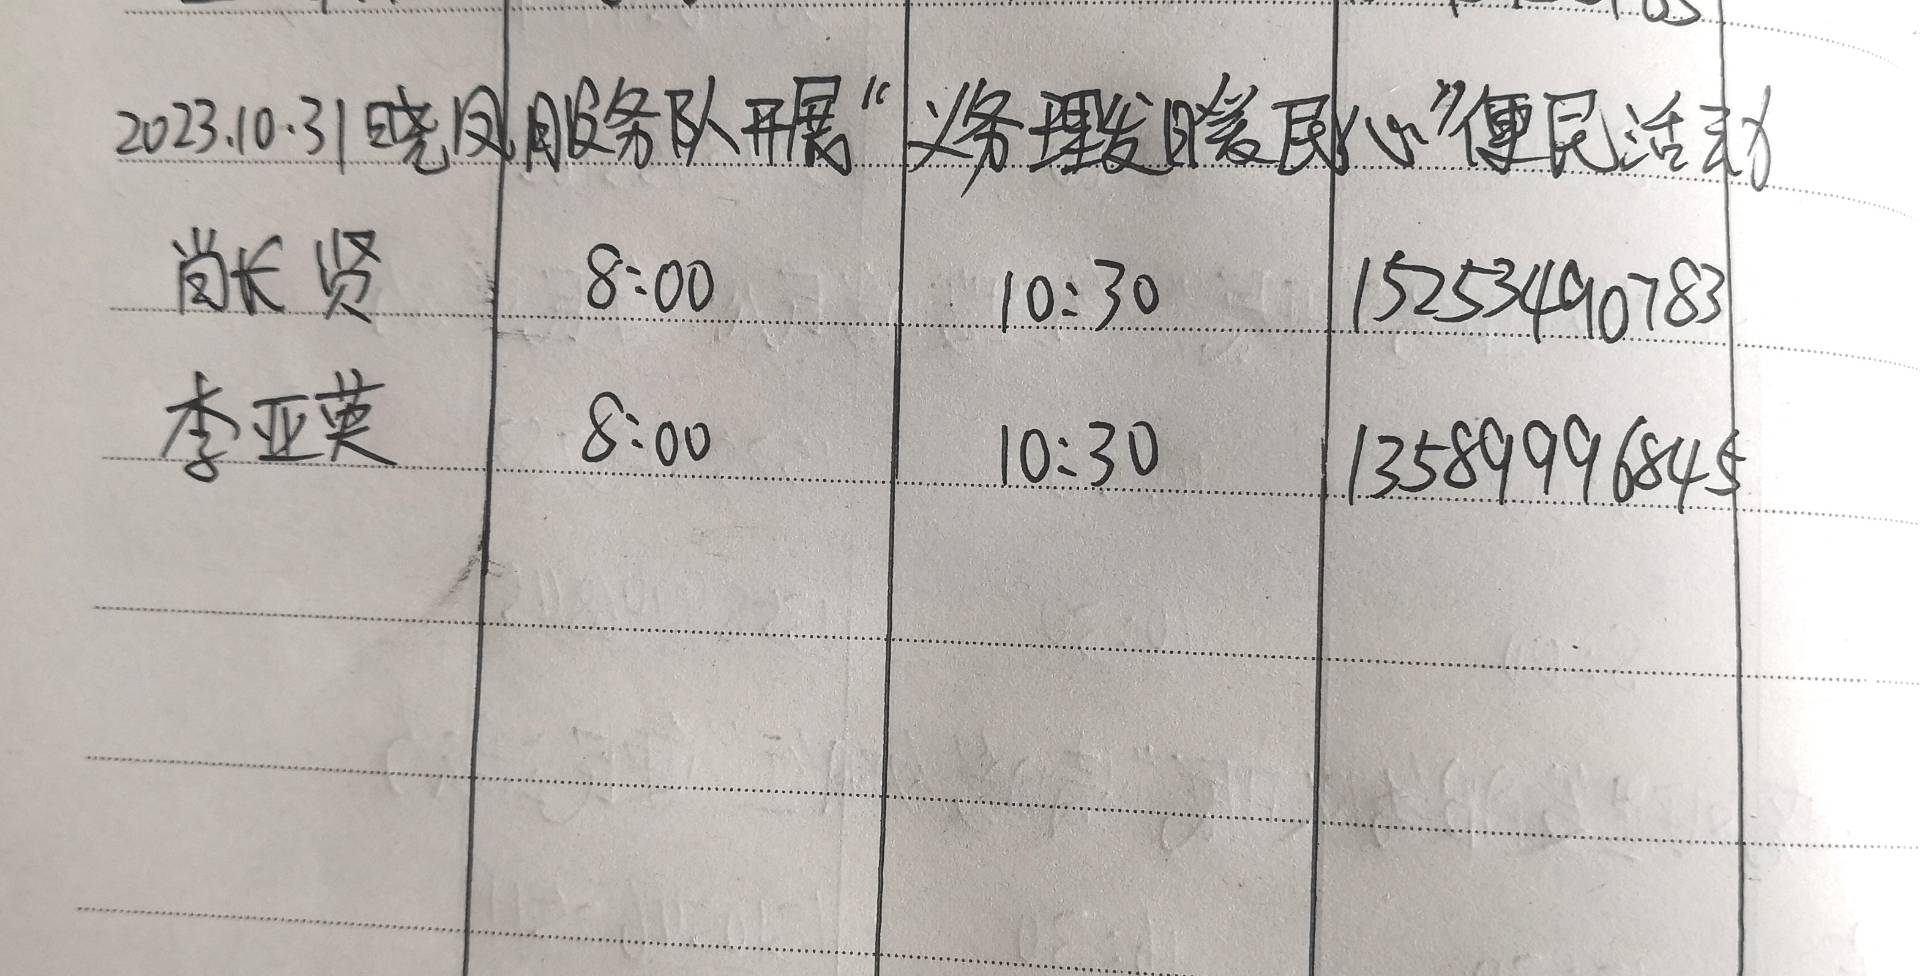 2023.10.31晓凤服务队开展“义务理发暖民心”便民活动
尚长贤 8:00 10:30 15253490783
李亚英 8:00 10:30 13589996845